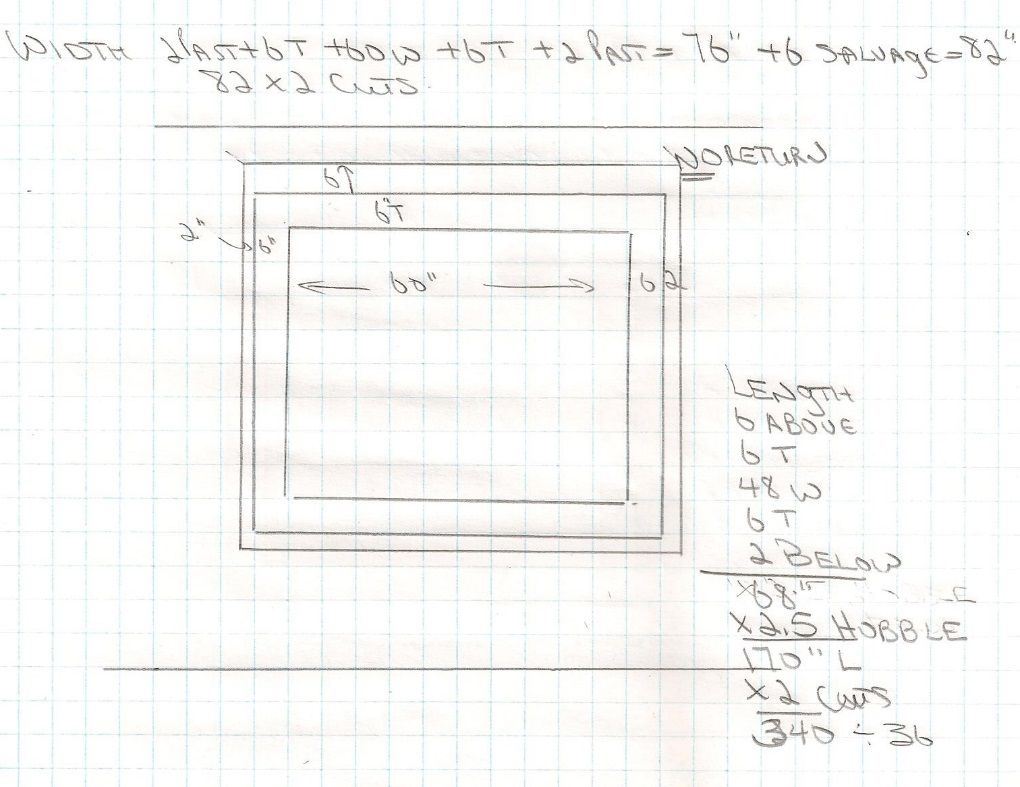 WIDTH 2PAST+6T +60W +6T +2PAST= 76" +6 SALVAGE=82"
82 X 2 CUTS
NO RETURN
6T
6"T
2" 6"
60"
6 2
LENGTH
6 ABOVE
6 T
48 W
6 T
2 BELOW
68"
X2.5 HOBBLE
170" L
X2 CUTS
340 ÷ 36